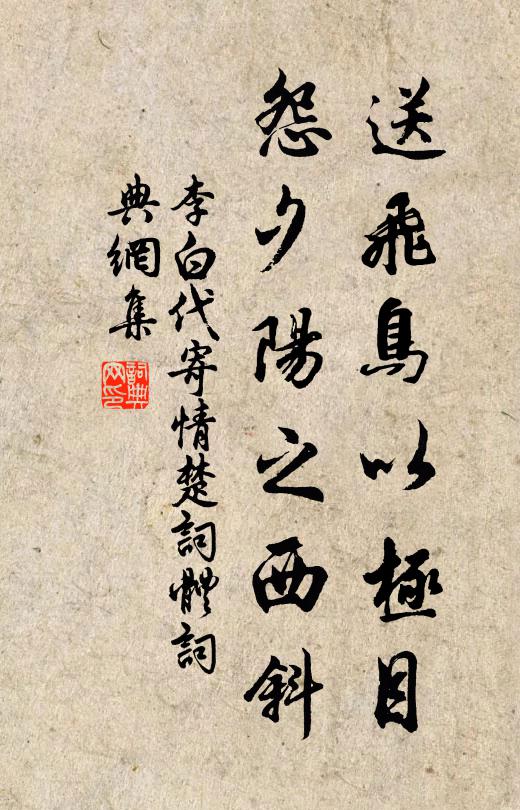 送飛鳥以極目
怨夕陽之西斜
李白代寄情楚詞體詞
典網集
詞典網印